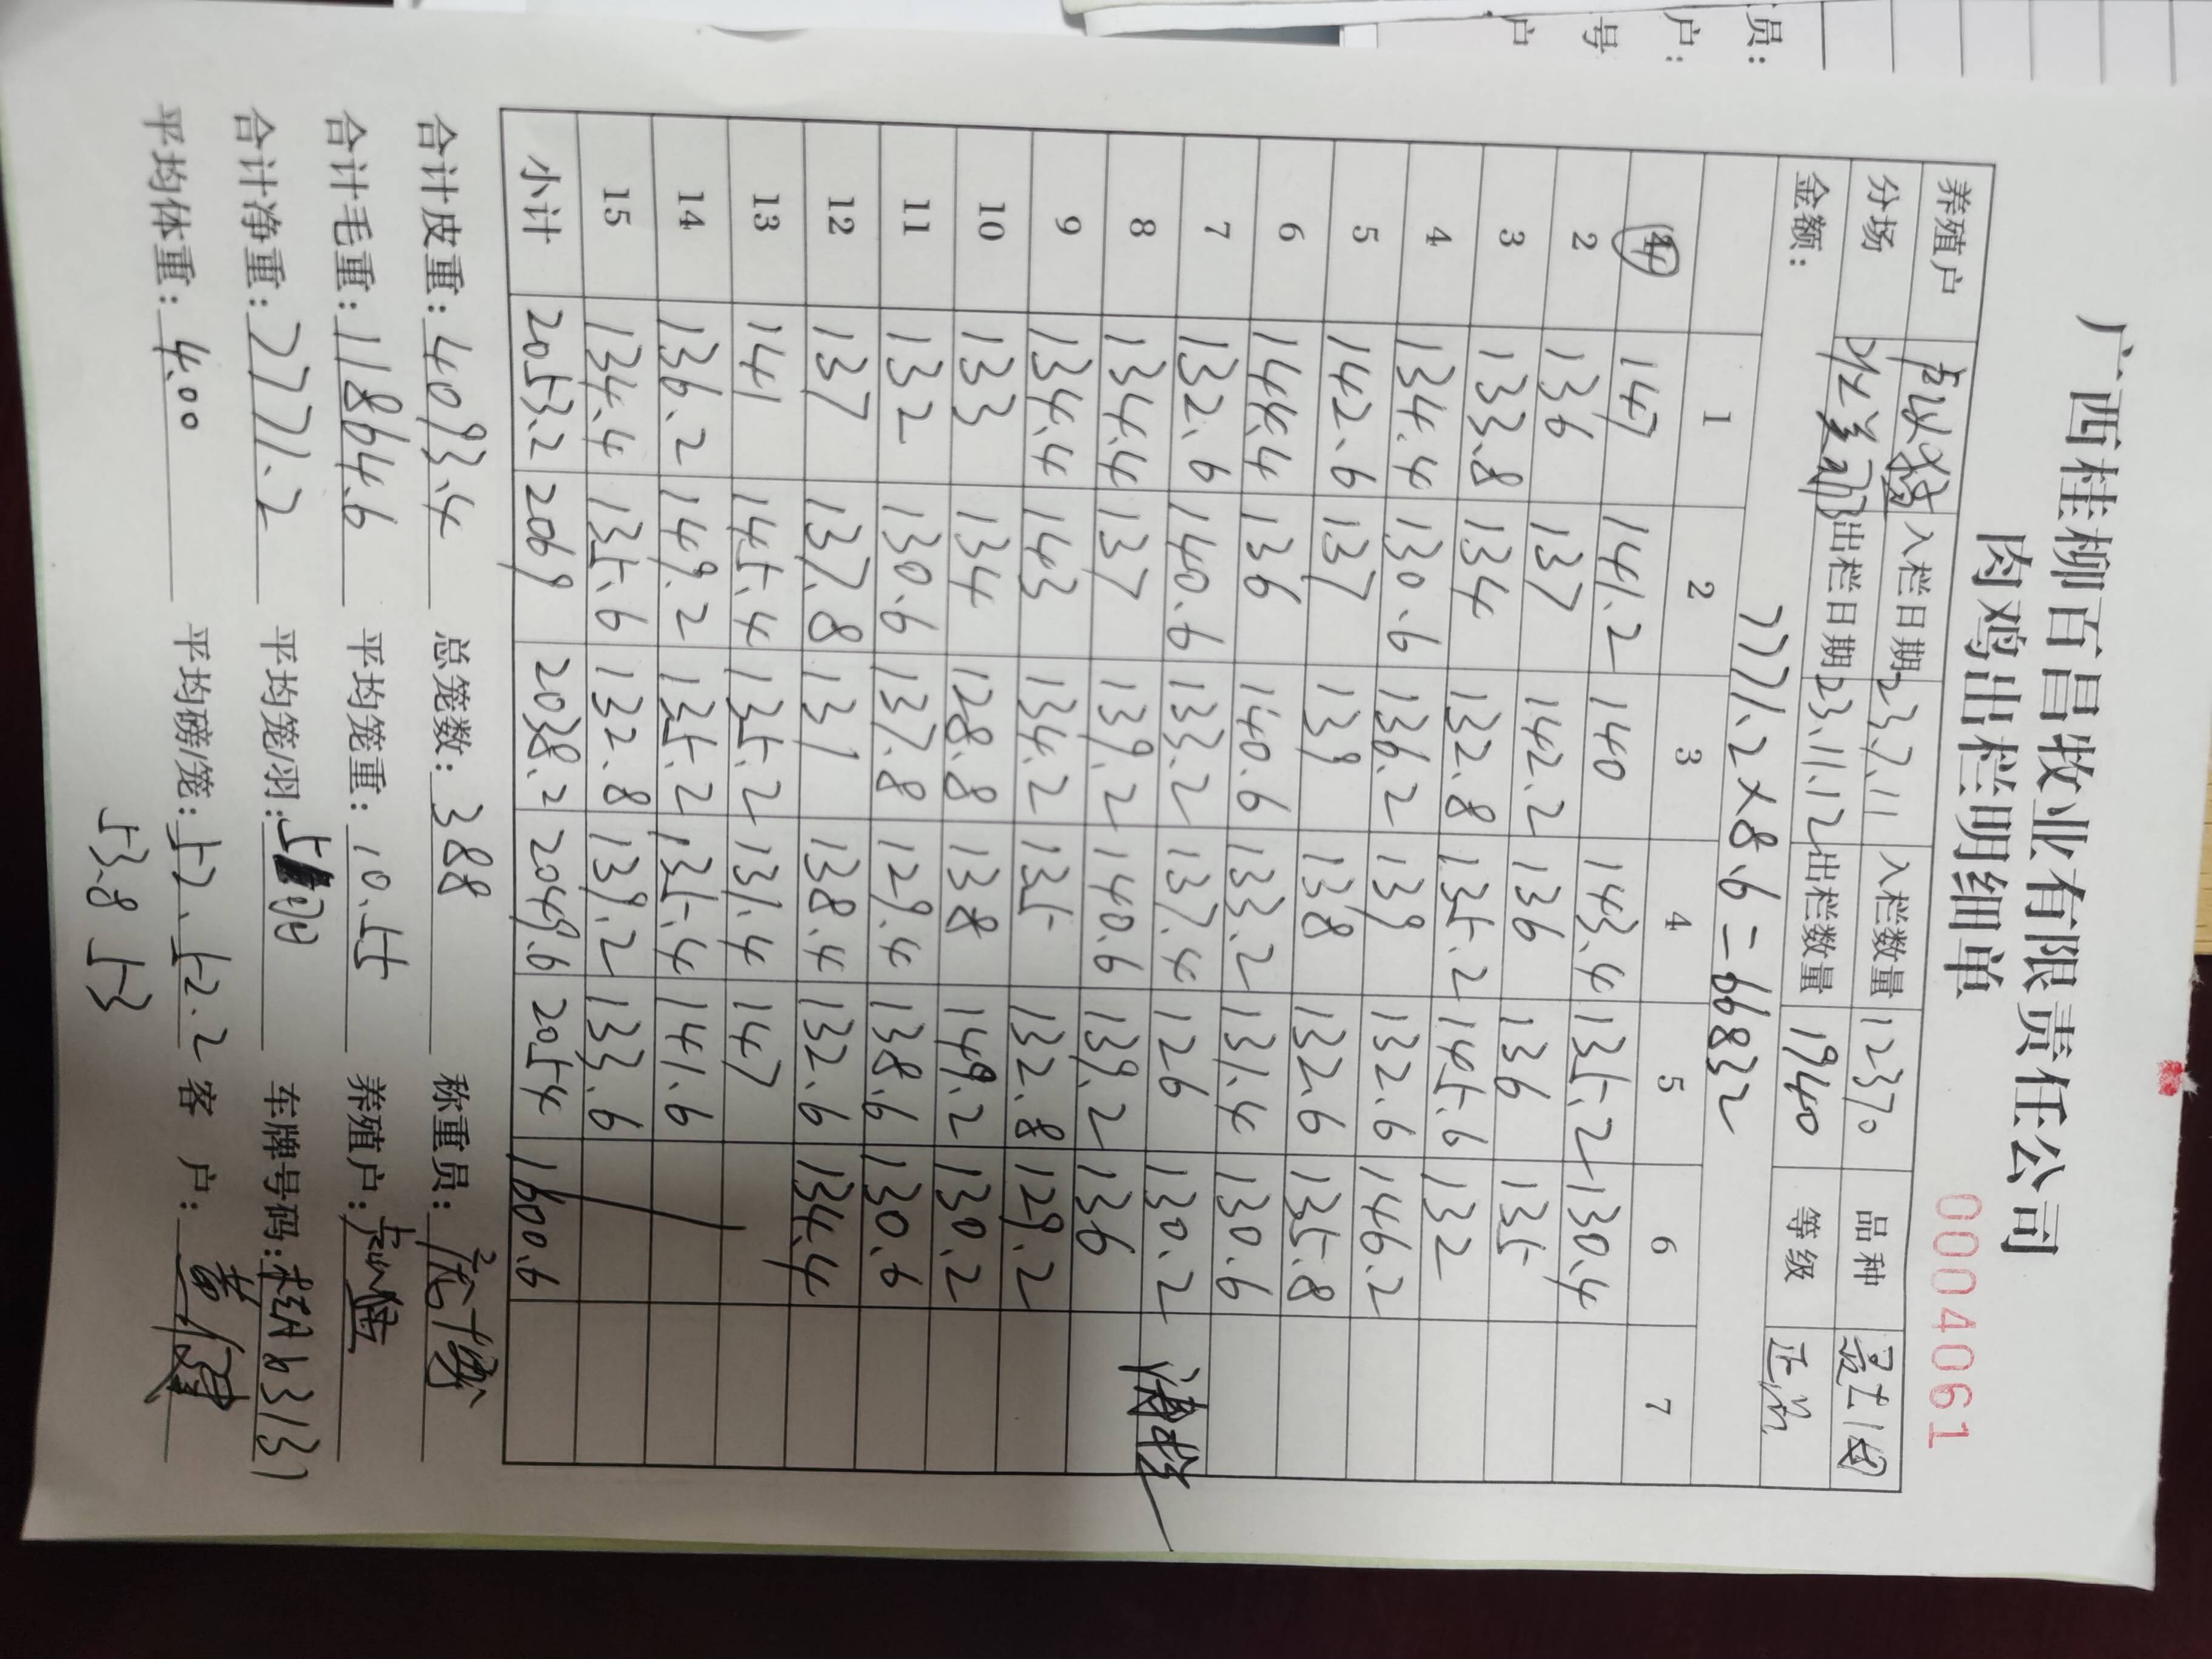 员:
户:
号
户
广西桂柳百昌牧业有限责任公司
肉鸡出栏明细单
0004061
养殖户 入栏日期 23.7.11 入栏数量 12370 品种
分场 出栏日期 23.11.12 出栏数量 1940 等级 正品
金额: 7771.2×8.6=66832
1 2 3 4 5 6 7
④ 147 141.2 140 143.4 135.2 130.4
2 136 137 142.2 136 136 135
3 133.8 134 132.8 135.2 145.6 132
4 134.4 130.6 136.2 139 132.6 146.2
5 142.6 137 139 138 132.6 135.8
6 144.4 136 140.6 133.2 131.4 130.6
7 132.6 140.6 133.2 137.4 126 130.2
8 134.4 137 139.2 140.6 139.2 136
9 134.4 143 134.2 135 132.8 129.2
10 133 134 128.8 138 149.2 130.2
11 132 130.6 137.8 129.4 138.6 130.6
12 137 137.8 131 138.4 132.6 134.4
13 141 145.4 135.2 131.4 147
14 136.2 149.2 135.2 135.4 141.6
15 134.4 135.6 132.8 139.2 133.6
小计 2053.2 2069 2038.2 2049.6 2054 1600.6
合计皮重: 4093.4 总笼数: 388 称重员:
合计毛重: 11864.6 平均笼重: 10.55 养殖户:
合计净重: 7771.2 平均笼/羽: 5 车牌号码:
平均体重: 4.00 平均磅/笼: 52、52.2 客 户:
53.8 53